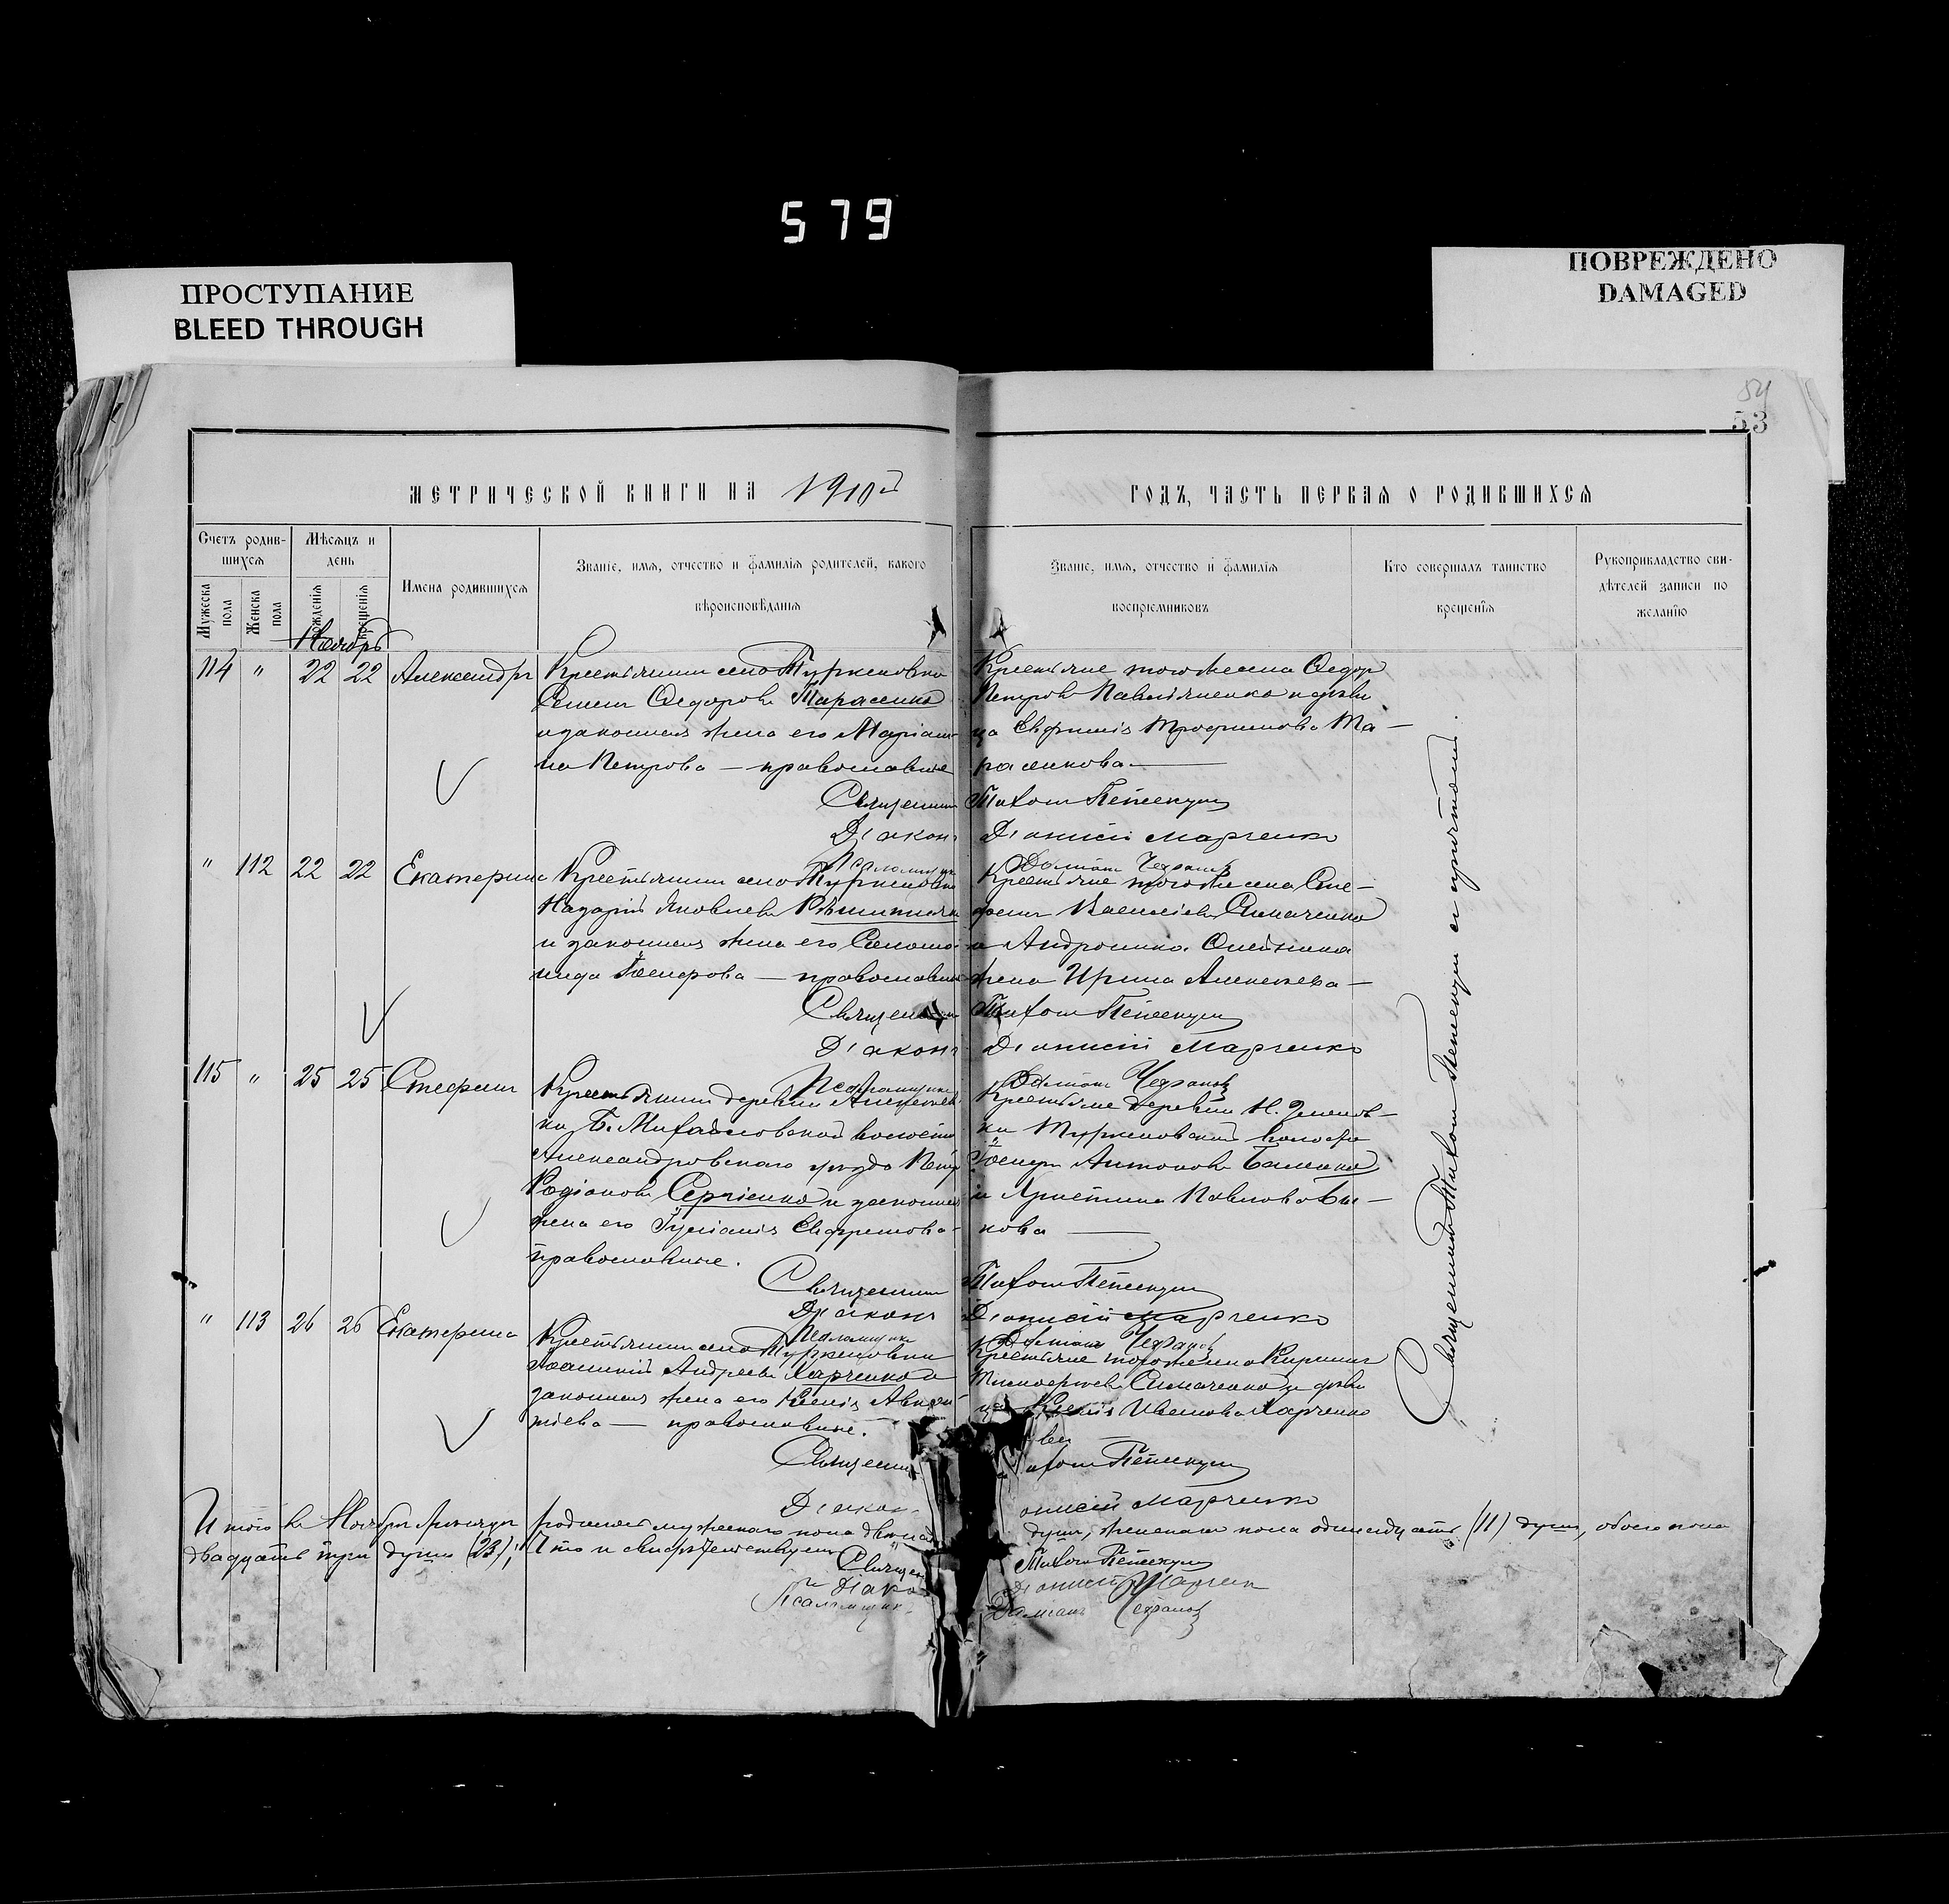 579
ПРОСТУПАНИЕ
BLEED THROUGH
ПОВРЕЖДЕНО
DAMAGED
54
53
МЕТРИЧЕСКОЙ КНИГИ НА 1910й
ГОДЪ, ЧАСТЬ ПЕРВАЯ О РОДИВШИХСЯ
Счетъ родив-
шихся
Мѣсяцъ и
день
Мужеска
пола
Женска
пола
рожденія
крещенія
Имена родившихся
Званіе, имя, отчество и фамилія родителей, какого
вѣроисповѣданія
Званіе, имя, отчество и фамилія
воспріемниковъ
Кто совершалъ таинство
крещенія
Рукоприкладство сви-
дѣтелей записи по
желанію
Ноябрь
114 " 22 22 Александръ
Крестьянинъ села Туркеновки
Феодоровъ Тарасенко
и законная жена его Маріам-
на Петрова — православные
Священник
Діаконъ
Псаломщикъ
Крестьяне того же села Ѳедоръ
Петровъ Павлиненко и дѣви
ца Евфимія Трофимова Та-
расенкова —
Тихонъ
Діонисій Марченко
Даміанъ
" 112 22 22 Екатерина
Крестьянинъ села Туркеновки
Назарій Яковлевъ
и законная жена его Саломо-
нида — православные
Священник
Діаконъ
Псаломщикъ
Крестьяне того же села Сте-
фанъ Василіевъ Симаченко
и Андроника Олейника
жена Ирина Алексеева —
Тихонъ
Діонисій Марченко
Даміанъ
115 " 25 25 Стефанъ
Крестьянинъ деревни Алексеев
ки Б. Михайловской волости
Александровскаго уѣзда Петръ
Родіоновъ Сергіенко и законная
жена его Іуліанія Евфремова-
православные.
Священник
Діаконъ
Псаломщикъ
Крестьяне деревни Н.
ки Туркеновской волости
Антоновъ
и Христина Павлова Бы-
кова —
Тихонъ
Діонисій Марченко
Даміанъ
" 113 26 26 Екатерина
Крестьянинъ села Туркеновки
Іоанникій Андреевъ Харченко и
законная жена его Ксенія
— православные.
Священник
Діакон
Крестьяне того же села Кириллъ
Тимофеевъ Симаченко и дѣви
ца Ксенія Иванова Харченко
ва
Тихонъ
онисій Марченко
Священникъ Тихонъ съ причтомъ.
Итого въ Ноябрѣ мѣсяцѣ родилось мужескаго пола душъ, женскаго пола одинадцать (11) душъ, обоего пола
двадцать три души (23); Что и свидѣтельствуемъ
Священ Тихонъ
Діако Діонисій Марченко
Псаломщик Даміанъ